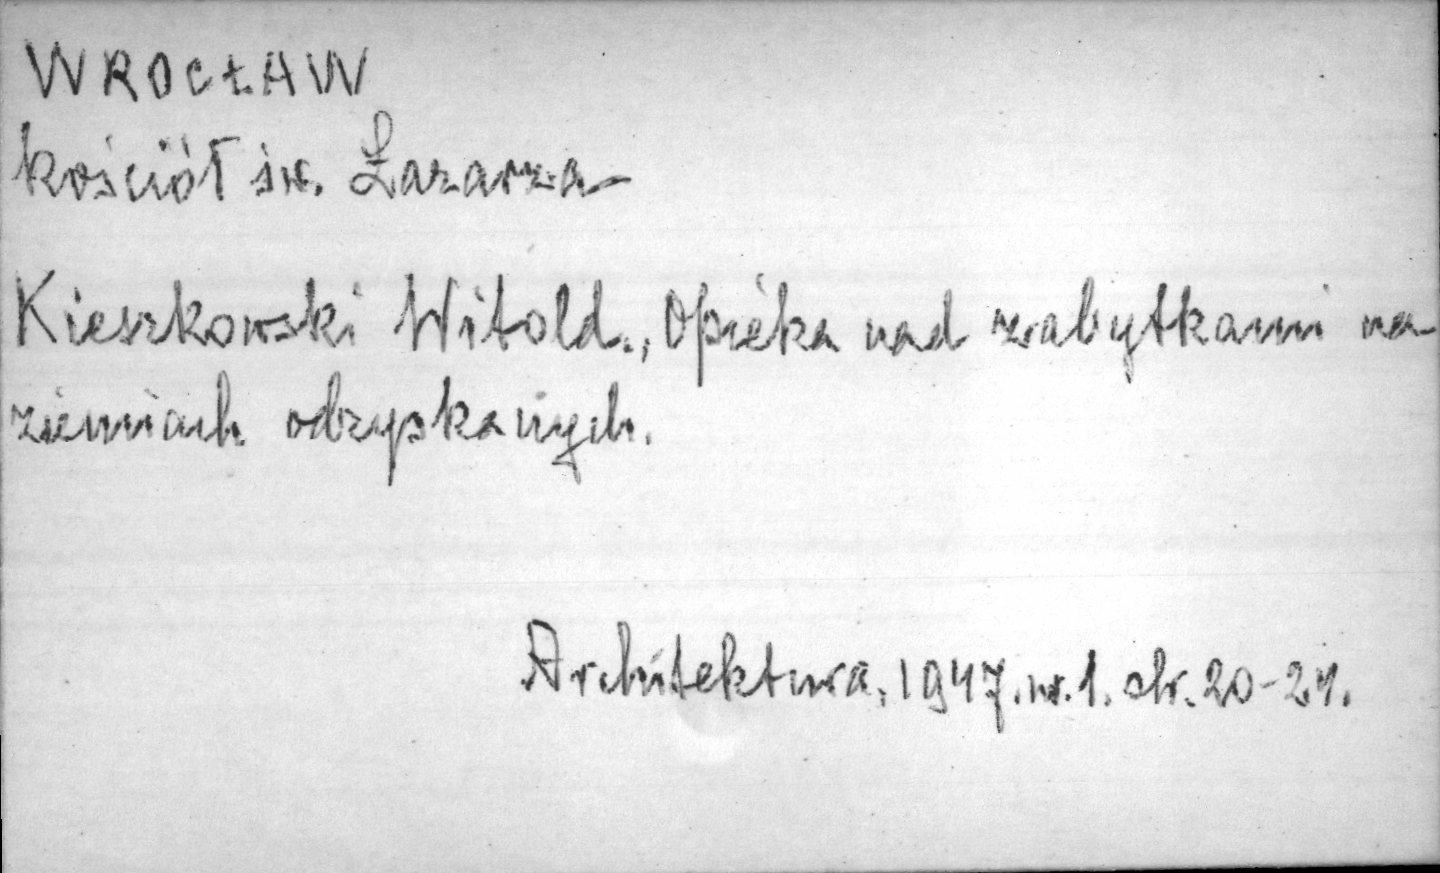 WROCŁAW
kościół św. Łazarza
Kieszkowski Witold., Opieka nad zabytkami na
ziemiach odzyskanych.
Architektura, 1947. nr. 1. str. 20-24.